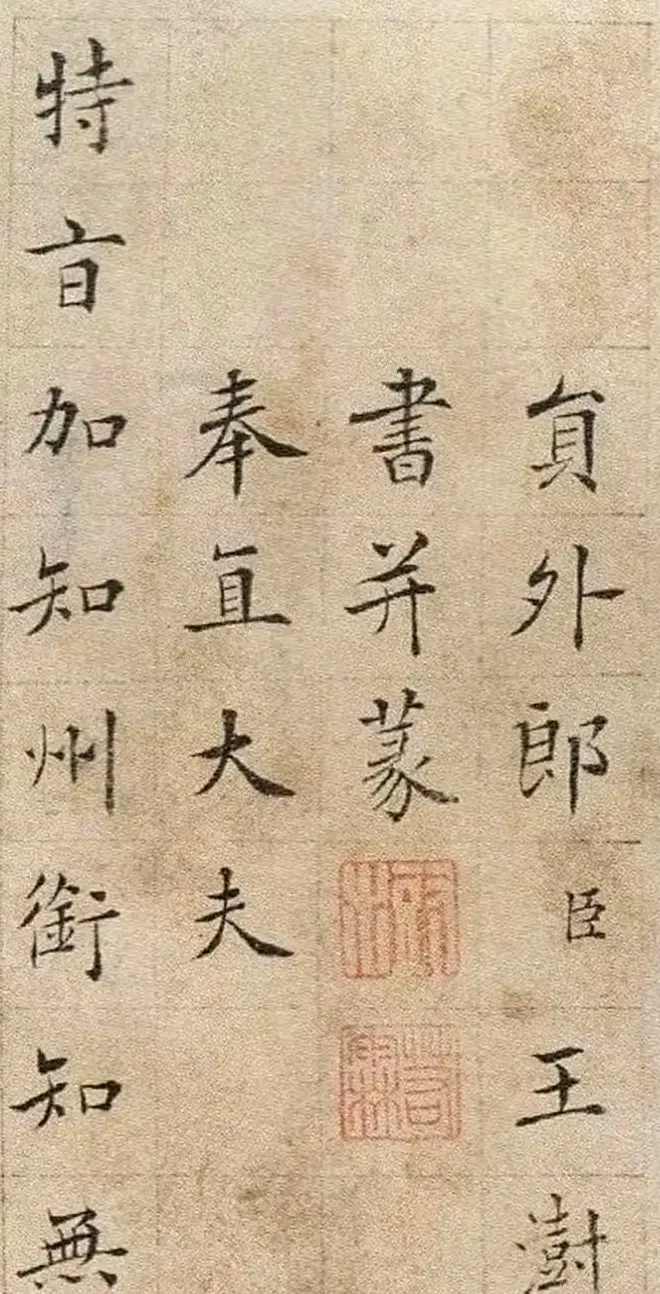 貟外郎臣王澍
書并篆
奉直大夫
特㫖加知州銜知無